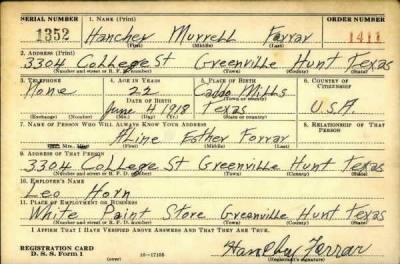 SERIAL NUMBER 1. NAME (Print) ORDER NUMBER
1352 Hancher Murrell Farrar 1411
(First) (Middle) (Last)
2. ADDRESS (Print)
3304 College St Greenville Hunt Texas
(Number and street or R. F. D. number) (Town) (County) (State)
3. TELEPHONE 4. AGE IN YEARS 5. PLACE OF BIRTH 6. COUNTRY OF CITIZENSHIP
None 22 Caddo Mills
DATE OF BIRTH (Town or county)
June 4 1918 Texas U.S.A.
(Exchange) (Number) (Mo.) (Day) (Yr.) (State or country)
7. NAME OF PERSON WHO WILL ALWAYS KNOW YOUR ADDRESS 8. RELATIONSHIP OF THAT PERSON
Aline Esther Farrar
(Mr., Mrs., Miss) (First) (Middle) (Last)
9. ADDRESS OF THAT PERSON
3304 College St Greenville Hunt Texas
(Number and street or R. F. D. number) (Town) (County) (State)
10. EMPLOYER'S NAME
Leo Horn
11. PLACE OF EMPLOYMENT OR BUSINESS
White Paint Store Greenville Hunt Texas
(Number and street or R. F. D. number) (Town) (County) (State)
I AFFIRM THAT I HAVE VERIFIED ABOVE ANSWERS AND THAT THEY ARE TRUE.
REGISTRATION CARD
D. S. S. Form 1 (over) 16-17105 Farrar
(Registrant's signature)